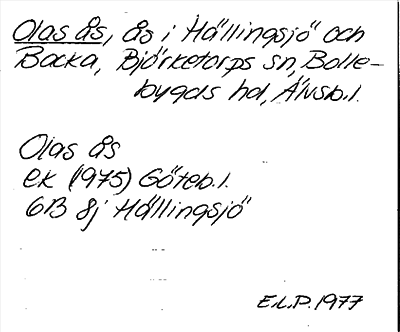 Olas ås, ås i Hällingsjö och
Backa, Björketorps sn, Bolle-
bygds hd, Älvsb.l.
Olas ås
ek (1975) Göteb.l.
6B 8j Hällingsjö
E.L.P. 1977